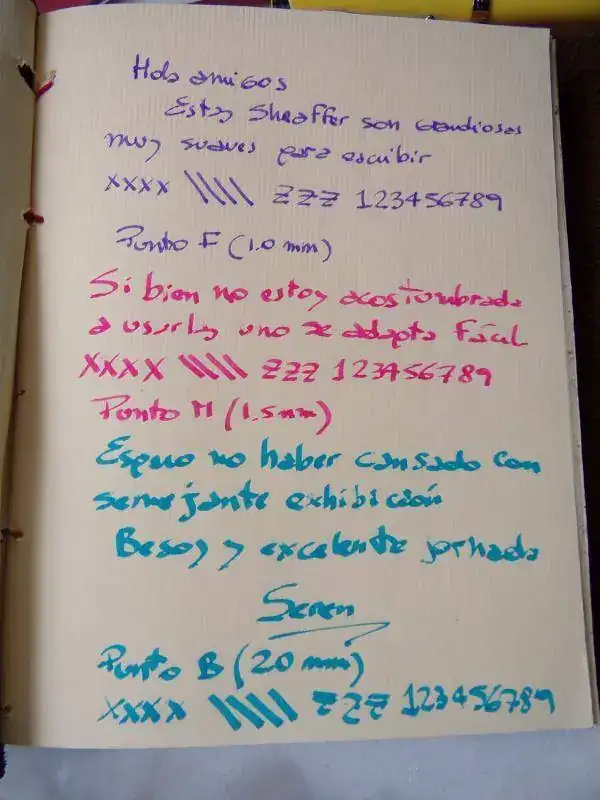 Hola amigos
Estas Sheaffer son grandiosas
muy suaves para escribir
xxxx \\\\ ZZZ 123456789
Punto F (1.0 mm)
Si bien no estoy acostumbrada
a usarlas uno se adapta fácil
XXXX \\\\ ZZZ 123456789
Punto M (1.5 mm)
Espero no haber cansado con
semejante exhibición
Besos y excelente jornada
Seren
Punto B (2.0 mm)
XXXX \\\\ ZZZ 123456789